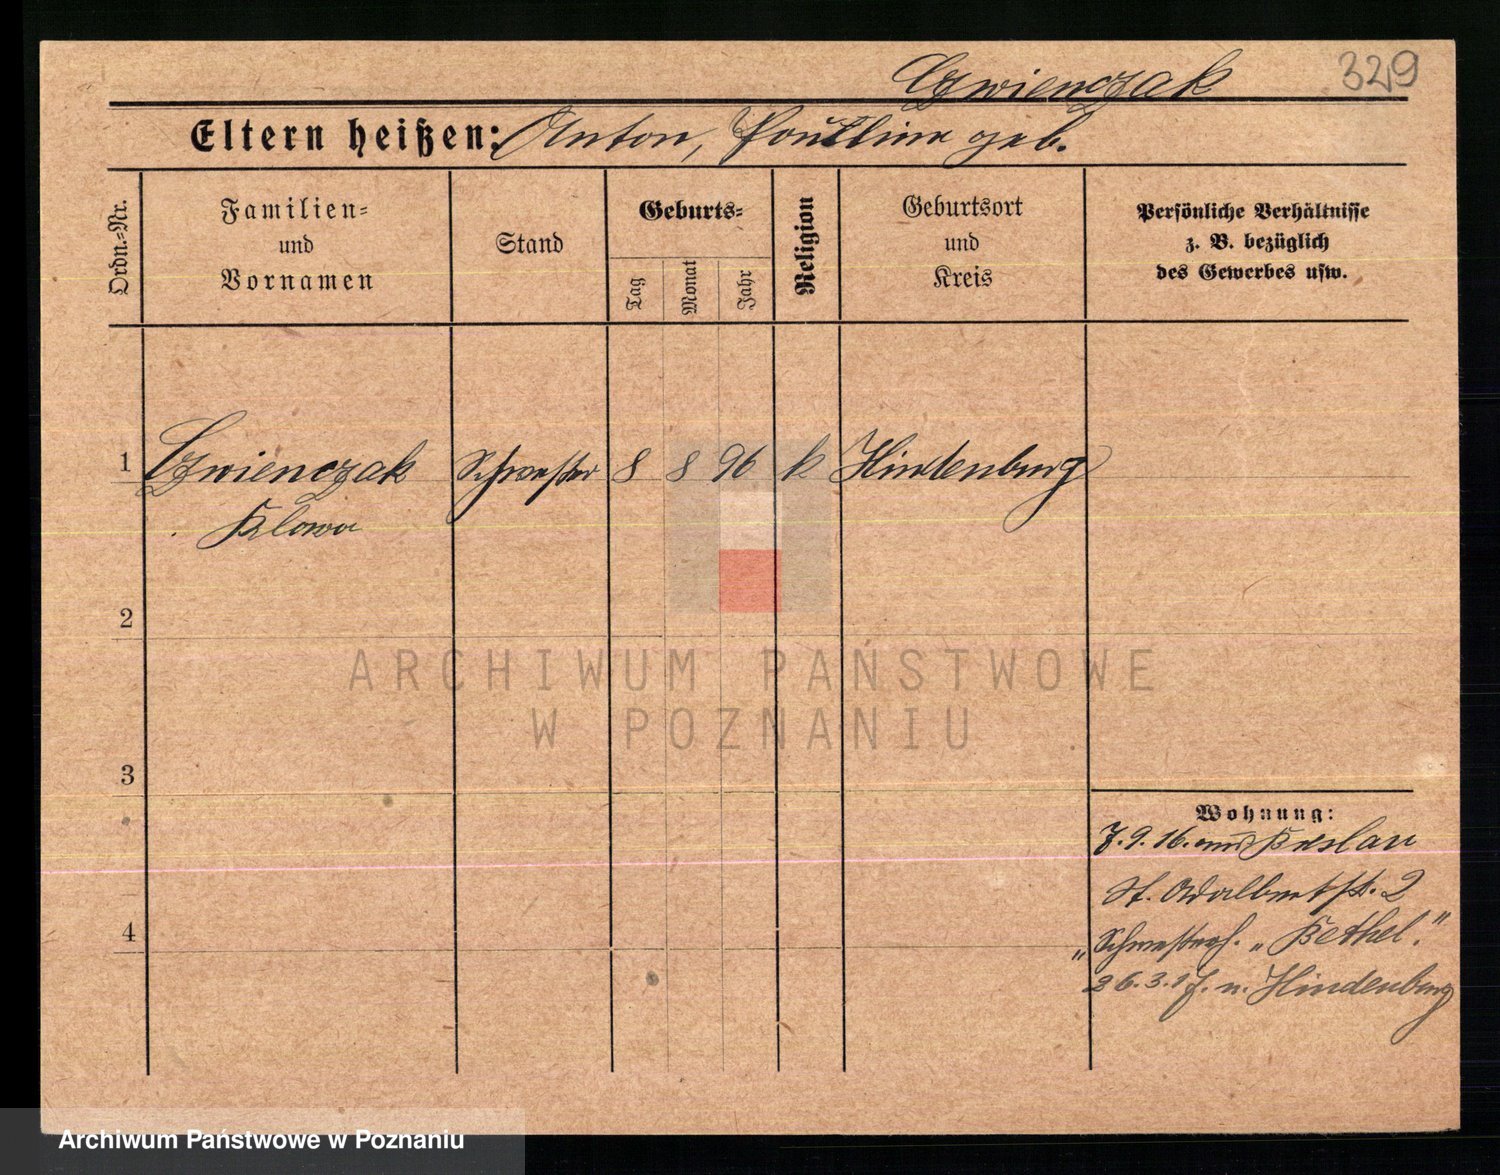 Czwienczak 329
Eltern heißen: Anton, Paulline geb.
Ordn.-Nr.
Familien-
und
Vornamen
Stand
Geburts-
Tag
Monat
Jahr
Religion
Geburtsort
und
Kreis
Persönliche Verhältnisse
z. B. bezüglich
des Gewerbes usw.
1 Czwienczak Schwester 8 8 96 k Hindenburg
Klara
2
3
4
Wohnung:
7.9.16. aus Breslau
St. Adalbertstr. 2
"Schwesterh. "Bethel."
26.3.17. n. Hindenburg
ARCHIWUM PAŃSTWOWE
W POZNANIU
Archiwum Państwowe w Poznaniu